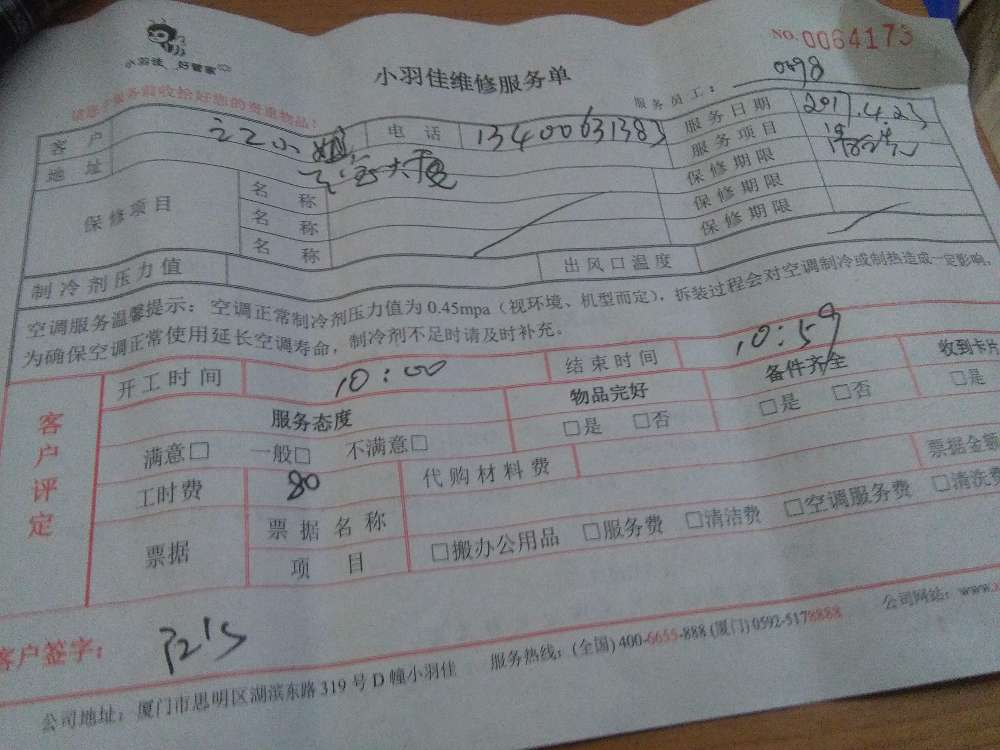 NO. 0064173
小羽佳 好管家
小羽佳维修服务单
服务员工: 0498
请您于服务前收拾好您的贵重物品!
客户 电话 13400631383 服务日期 2017.4.23
地址 服务项目
保修项目 名称 保修期限
名称 保修期限
名称 保修期限
制冷剂压力值 出风口温度
空调服务温馨提示: 空调正常制冷剂压力值为0.45mpa(视环境、机型而定), 拆装过程会对空调制冷或制热造成一定影响,
为确保空调正常使用延长空调寿命, 制冷剂不足时请及时补充。
客户评定
开工时间 10:00 结束时间 10:59
服务态度 物品完好 备件齐全 收到卡片
满意□ 一般□ 不满意□ □是 □否 □是 □否 □是
工时费 80 代购材料费 票据金额
票据 票据名称 □搬办公用品 □服务费 □清洁费 □空调服务费 □清洗费
项目
客户签字:
公司地址: 厦门市思明区湖滨东路319号D幢小羽佳 服务热线: (全国) 400-6655-888 (厦门) 0592-5178888 公司网站: www.